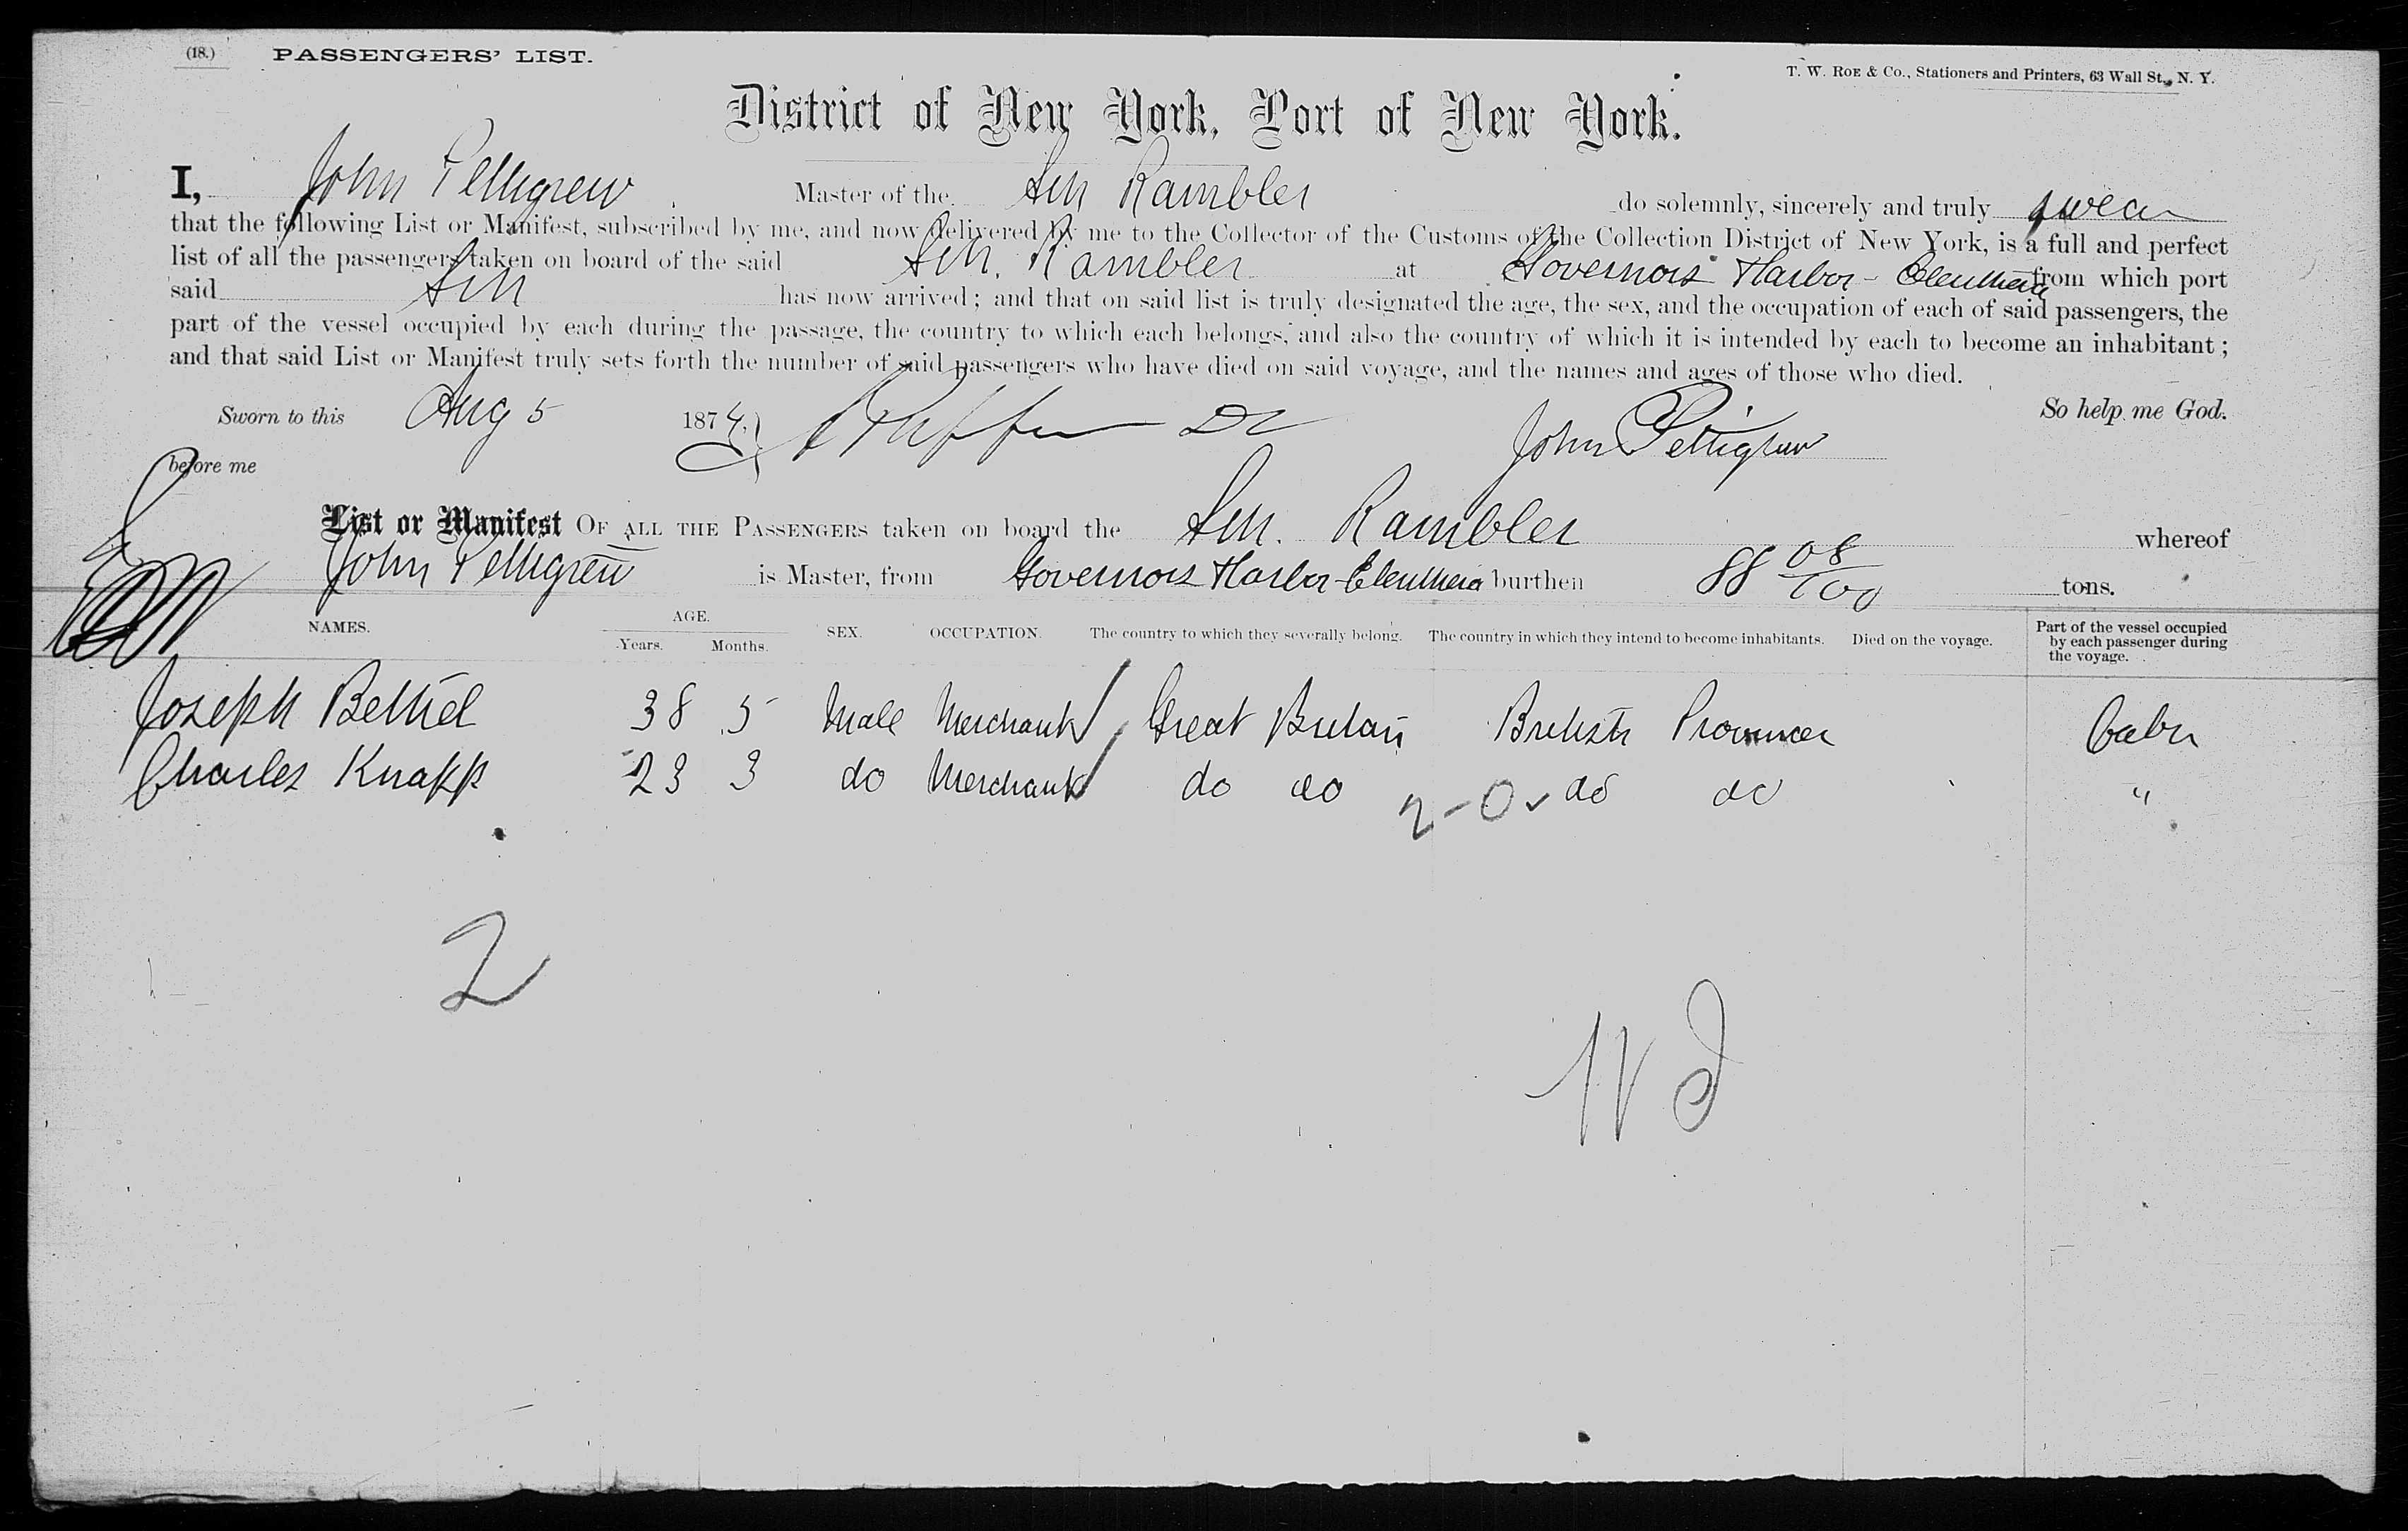 (18.) PASSENGERS' LIST.
T. W. ROE & CO., Stationers and Printers, 63 Wall St., N. Y.
District of New York, Port of New York.
I, John Pettigrew Master of the Sch Rambler do solemnly, sincerely and truly swear
that the following List or Manifest, subscribed by me, and now delivered by me to the Collector of the Customs of the Collection District of New York, is a full and perfect
list of all the passengers taken on board of the said Sch. Rambler at Governors Harbor - Eleuthera from which port
said Sch has now arrived; and that on said list is truly designated the age, the sex, and the occupation of each of said passengers, the
part of the vessel occupied by each during the passage, the country to which each belongs, and also the country of which it is intended by each to become an inhabitant;
and that said List or Manifest truly sets forth the number of said passengers who have died on said voyage, and the names and ages of those who died.
Sworn to this Aug 5 1874. John Pettigrew So help me God.
before me
List or Manifest OF ALL THE PASSENGERS taken on board the Sch. Rambler whereof
John Pettigrew is Master, from Governors Harbor - Eleuthera burthen 88 08/100 tons.
NAMES. AGE. Years. Months. SEX. OCCUPATION. The country to which they severally belong. The country in which they intend to become inhabitants. Died on the voyage. Part of the vessel occupied by each passenger during the voyage.
Joseph Bethel 38 5 Male Merchant Great Britain British Province Cabin
Charles Knapp 23 3 do Merchant do do 2-0 do do "
2